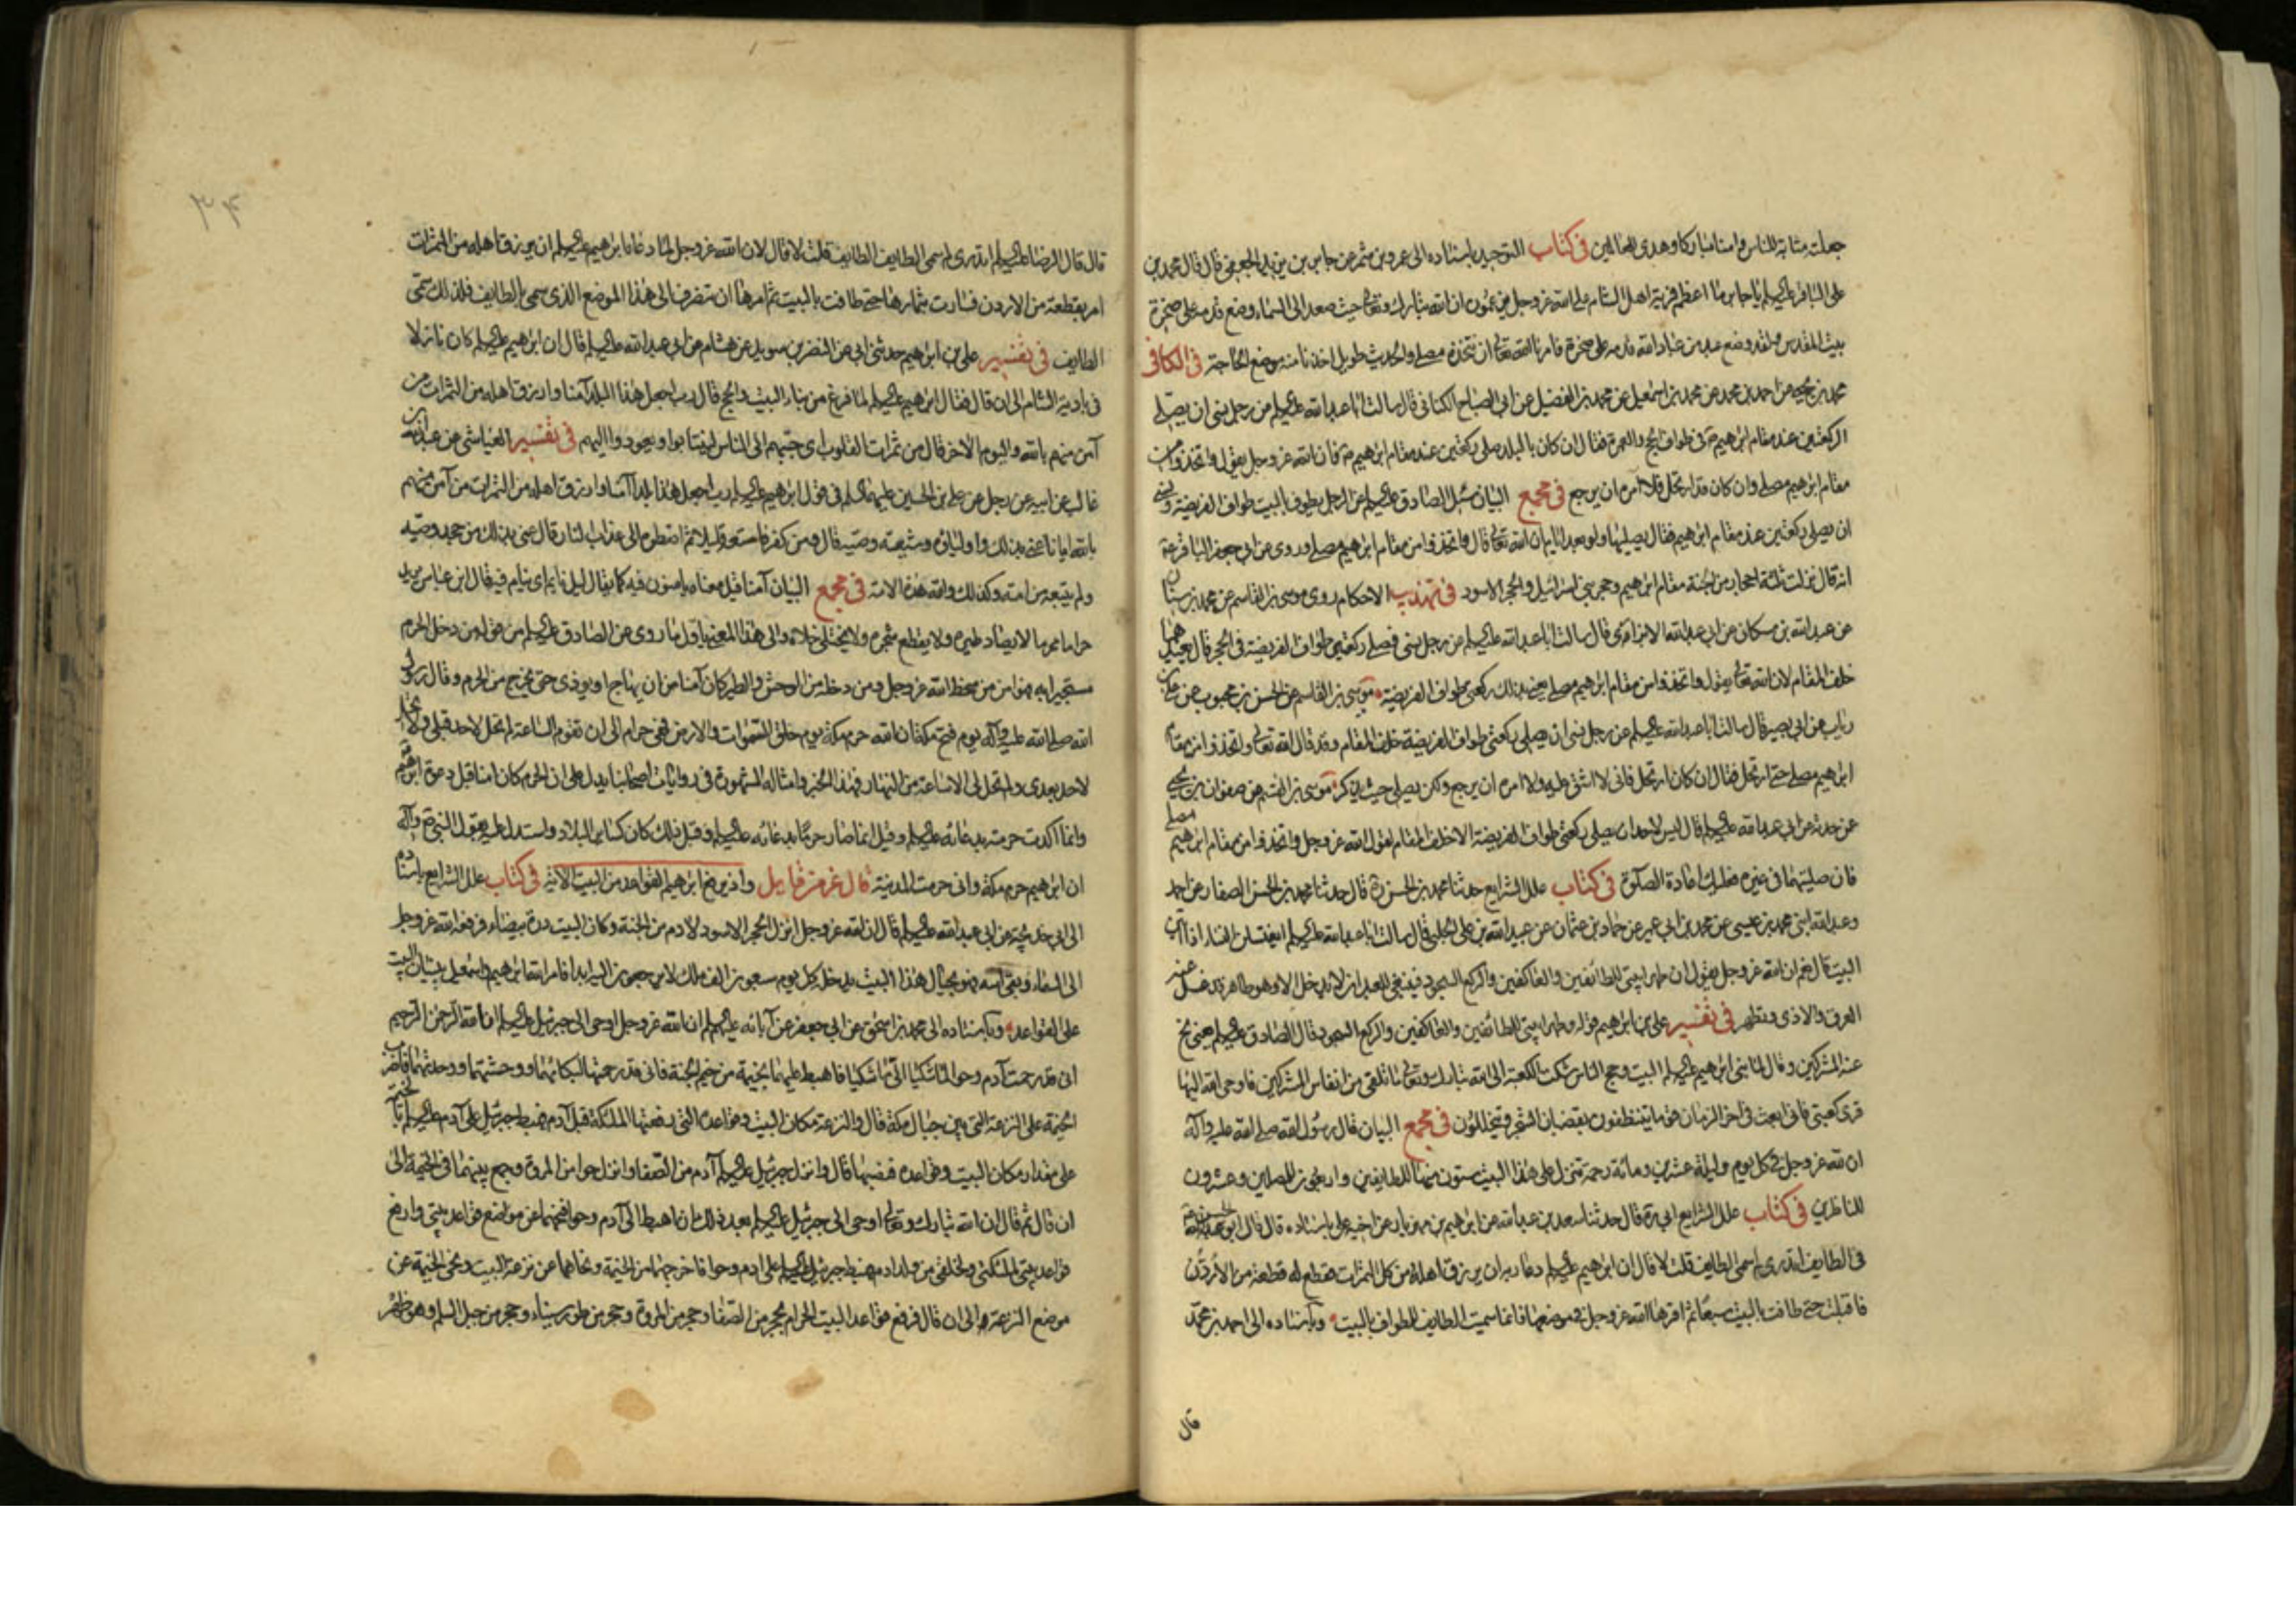 جعلته مثابة للناس وامنا مباركا وهدى للعالمين في كتاب التوحيد باسناده الى عمرو بن شمر عن جابر بن يزيد الجعفي قال قال محمد بن
على الباقر عليه السلم يا جابر ما اعظم فرية اهل الشام على الله عز وجل يزعمون ان الله تبارك وتعالى حيث صعد الى السماء وضع قدمه على صخرة
بيت المقدس ولقد وضع عبد من عباد الله قدمه على صخرة فامرنا الله تعالى ان نتخذه مصلى والحديث طويل اخذنا منه موضع الحاجة في الكافى
محمد بن يحيى عن احمد بن محمد عن محمد بن اسمعيل عن محمد بن الفضيل عن ابي الصباح الكنانى قال سالت ابا عبد الله عليه السلم عن رجل نسى ان يصلى
الركعتين عند مقام ابرهيم ع في طواف الحج والعمرة فقال ان كان بالبلد صلى ركعتين عند مقام ابرهيم ع فان الله عز وجل يقول واتخذوا من
مقام ابرهيم مصلى وان كان قد ارتحل فلا آمره ان يرجع في مجمع البيان سئل الصادق عليه السلم عن الرجل يطوف بالبيت طواف الفريضة ونسى
ان يصلى ركعتين عند مقام ابرهيم فقال يصليها ولو بعد ايام ان الله تعالى قال واتخذوا من مقام ابرهيم مصلى وروى عن ابي جعفر الباقر ع
انه قال نزلت ثلثة احجار من الجنة مقام ابرهيم وحجر بني اسرائيل والحجر الاسود في تهذيب الاحكام روى موسى بن القاسم عن محمد بن سنان
عن عبد الله بن مسكان عن ابي عبد الله الابزارى قال سالت ابا عبد الله عليه السلم عن رجل نسى فصلى ركعتى طواف الفريضة في الحجر قال يعيدهما
خلف المقام لان الله تعالى يقول واتخذوا من مقام ابرهيم مصلى يعنى بذلك ركعتى طواف الفريضة موسى بن القاسم عن الحسن بن محبوب عن على بن
رياب عن ابي بصير قال سالت ابا عبد الله عليه السلم عن رجل نسى ان يصلى ركعتى طواف الفريضة خلف المقام وقد قال الله تعالى واتخذوا من مقام
ابرهيم مصلى حتى ارتحل فقال ان كان ارتحل فانى لا اشق عليه ولا امره ان يرجع ولكن يصلى حيث يذكر موسى بن القسم عن صفوان بن يحيى
عن حدثه عن ابي عبد الله عليه السلم قال ليس لاحد ان يصلى ركعتى طواف الفريضة الا خلف المقام لقول الله عز وجل واتخذوا من مقام ابرهيم مصلى
فان صليتهما في غيره فعليك اعادة الصلوة في كتاب علل الشرايع حدثنا محمد بن الحسن ره قال حدثنا محمد بن الحسن الصفار عن احمد
وعبد الله ابنى محمد بن عيسى عن محمد بن ابي عمير عن حماد بن عثمان عن عبيد الله بن على الحلبى قال سالت ابا عبد الله عليه السلم ايغتسلن النساء اذا اتين
البيت قال نعم ان الله عز وجل يقول ان طهرا بيتى للطائفين والعاكفين والركع السجود فينبغى للعبد ان لا يدخل الا وهو طاهر قد غسل عنه
العرق والاذى وتطهر في تفسير على بن ابرهيم قوله وطهرا بيتى للطائفين والعاكفين والركع السجود قال الصادق عليه السلم يعنى نح
عنه المشركين وقال لما بنى ابرهيم عليه السلم البيت وحج الناس شكت الكعبة الى الله تبارك وتعالى ما تلقى من انفاس المشركين فاوحى الله اليها
قرى كعبتى فانى ابعث في اخر الزمان قوما يتنظفون بقضبان الشجر ويتخللون في مجمع البيان قال رسول الله صلى الله عليه وآله
ان لله عز وجل في كل يوم وليلة عشرين ومائة رحمة تنزل على هذا البيت ستون منها للطايفين واربعون للمصلين وعشرون
للناظرين في كتاب علل الشرايع ابي ره قال حدثنا سعد بن عبد الله عن ابرهيم بن مهزيار عن اخيه على باسناده قال قال ابو الحسن ع
في الطايف اتدرى لم سمى الطايف قلت لا قال ان ابرهيم عليه السلم دعا ربه ان يرزق اهله من كل الثمرات فقطع له قطعة من الاردن
فاقبلت حتى طافت بالبيت سبعا ثم اقرها الله عز وجل في موضعها فانما سميت الطايف للطواف بالبيت وباسناده الى احمد بن محمد
قال
٣۴
قال قال الرضا عليه السلم اتدرى لم سمى الطايف الطايف قلت لا قال لان الله عز وجل لما دعاه ابرهيم عليه السلم ان يرزق اهله من الثمرات
امر بقطعة من الاردن فسارت بثمارها حتى طافت بالبيت ثم امرها ان تنصرف الى هذا الموضع الذى سمى بالطايف فلذلك سمى
الطايف في تفسير على بن ابرهيم حدثنى ابي عن النضر بن سويد عن هشام عن ابي عبد الله عليه السلم قال ان ابرهيم عليه السلم كان نازلا
في بادية الشام الى ان قال فقال ابرهيم عليه السلم لما فرغ من بناء البيت والحج قال رب اجعل هذا البلد آمنا وارزق اهله من الثمرات من
آمن منهم بالله واليوم الاخر قال من ثمرات القلوب اى حببهم الى الناس لينتابوا ويعودوا اليهم في تفسير العياشى عن عبد الله بن
غالب عن ابيه عن رجل عن على بن الحسين عليهما السلم في قول ابرهيم عليه السلم رب اجعل هذا بلدا آمنا وارزق اهله من الثمرات من آمن منهم
بالله ايانا عنى بذلك واولياؤه وشيعة وصيه قال ومن كفر فامتعه قليلا ثم اضطره الى عذاب النار قال عنى بذلك من جحد وصيه
ولم يتبعه من امته وكذلك والله هذه الامة في مجمع البيان آمنا قيل معناه يامنون فيه كما يقال ليل نايم اى ينام فيه قال ابن عباس يريد
حراما محرما لا يصاد طيره ولا يقطع شجره ولا يختلى خلاه والى هذا المعنى يؤل ما روى عن الصادق عليه السلم من قوله من دخل الحرم
مستجيرا به فهو امن من سخط الله عز وجل ومن دخله من الوحش والطير كان آمنا من ان يهاج او يوذى حتى يخرج من الحرم وقال رسول
الله صلى الله عليه وآله يوم فتح مكة ان الله حرم مكة يوم خلق السموات والارض فهى حرام الى ان تقوم الساعة لم تحل لاحد قبلى ولا تحل
لاحد بعدى ولم تحل لى الا ساعة من النهار فهذا الخبر وامثاله المشهورة في روايات اصحابنا يدل على ان الحرم كان امنا قبل دعوة ابرهيم
وانما اكدت حرمته بدعائه عليه السلم وقيل انما صار حرما بدعائه عليه السلم وقبل ذلك كان كساير البلاد واستدل عليه بقول النبي ص وآله
ان ابرهيم حرم مكة وانى حرمت المدينة قال عز من قايل واذ يرفع ابرهيم القواعد من البيت الآية في كتاب علل الشرايع باسناده
الى ابي خديجة عن ابي عبد الله عليه السلم قال ان الله عز وجل انزل الحجر الاسود لادم من الجنة وكان البيت درة بيضاء فرفعه الله عز وجل
الى السماء وبقى اسه فهو بحيال هذا البيت يدخله كل يوم سبعون الف ملك لا يرجعون اليه ابدا فامر الله ابرهيم واسمعيل ببنيان البيت
على القواعد وباسناده الى محمد بن اسحق عن ابي جعفر عن آبائه عليهم السلم ان الله عز وجل اوحى الى جبرئيل عليه السلم انا الله الرحمن الرحيم
انى قد رحمت آدم وحوا لما شكيا الى ما شكيا فاهبط عليهما بخيمة من خيم الجنة فانى قد رحمتهما لبكائهما ووحشتهما ووحدتهما فاضرب
الخيمة على النزعة التى بين جبال مكة قال والنزعة مكان البيت وقواعده التى رفعتها الملئكة قبل آدم فهبط جبرئيل على آدم عليه السلم بالخيمة
على مقدار مكان البيت وقواعده فنصبها قال وانزل جبرئيل عليه السلم آدم من الصفا وانزل حوا من المروة وجمع بينهما في الخيمة الى
ان قال ثم قال ان الله تبارك وتعالى اوحى الى جبرئيل عليه السلم بعد ذلك ان اهبط الى آدم وحوا فنحهما عن مواضع قواعد بيتى وارفع
قواعد بيتى لملئكتى ولخلقى من ولد ادم فهبط جبرئيل عليه السلم على ادم وحوا فاخرجهما من الخيمة ونحاهما عن نزعة البيت ونحى الخيمة عن
موضع النزعة الى ان قال فرفع قواعد البيت الحرام بحجر من الصفا وحجر من المروة وحجر من طور سيناء وحجر من جبل السلم وهو ظهر